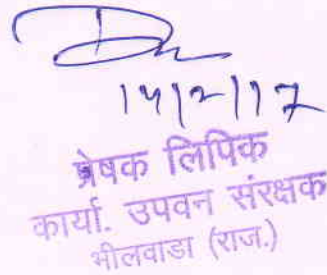 14/2/17
प्रेषक लिपिक
कार्या. उपवन संरक्षक
भीलवाडा (राज.)